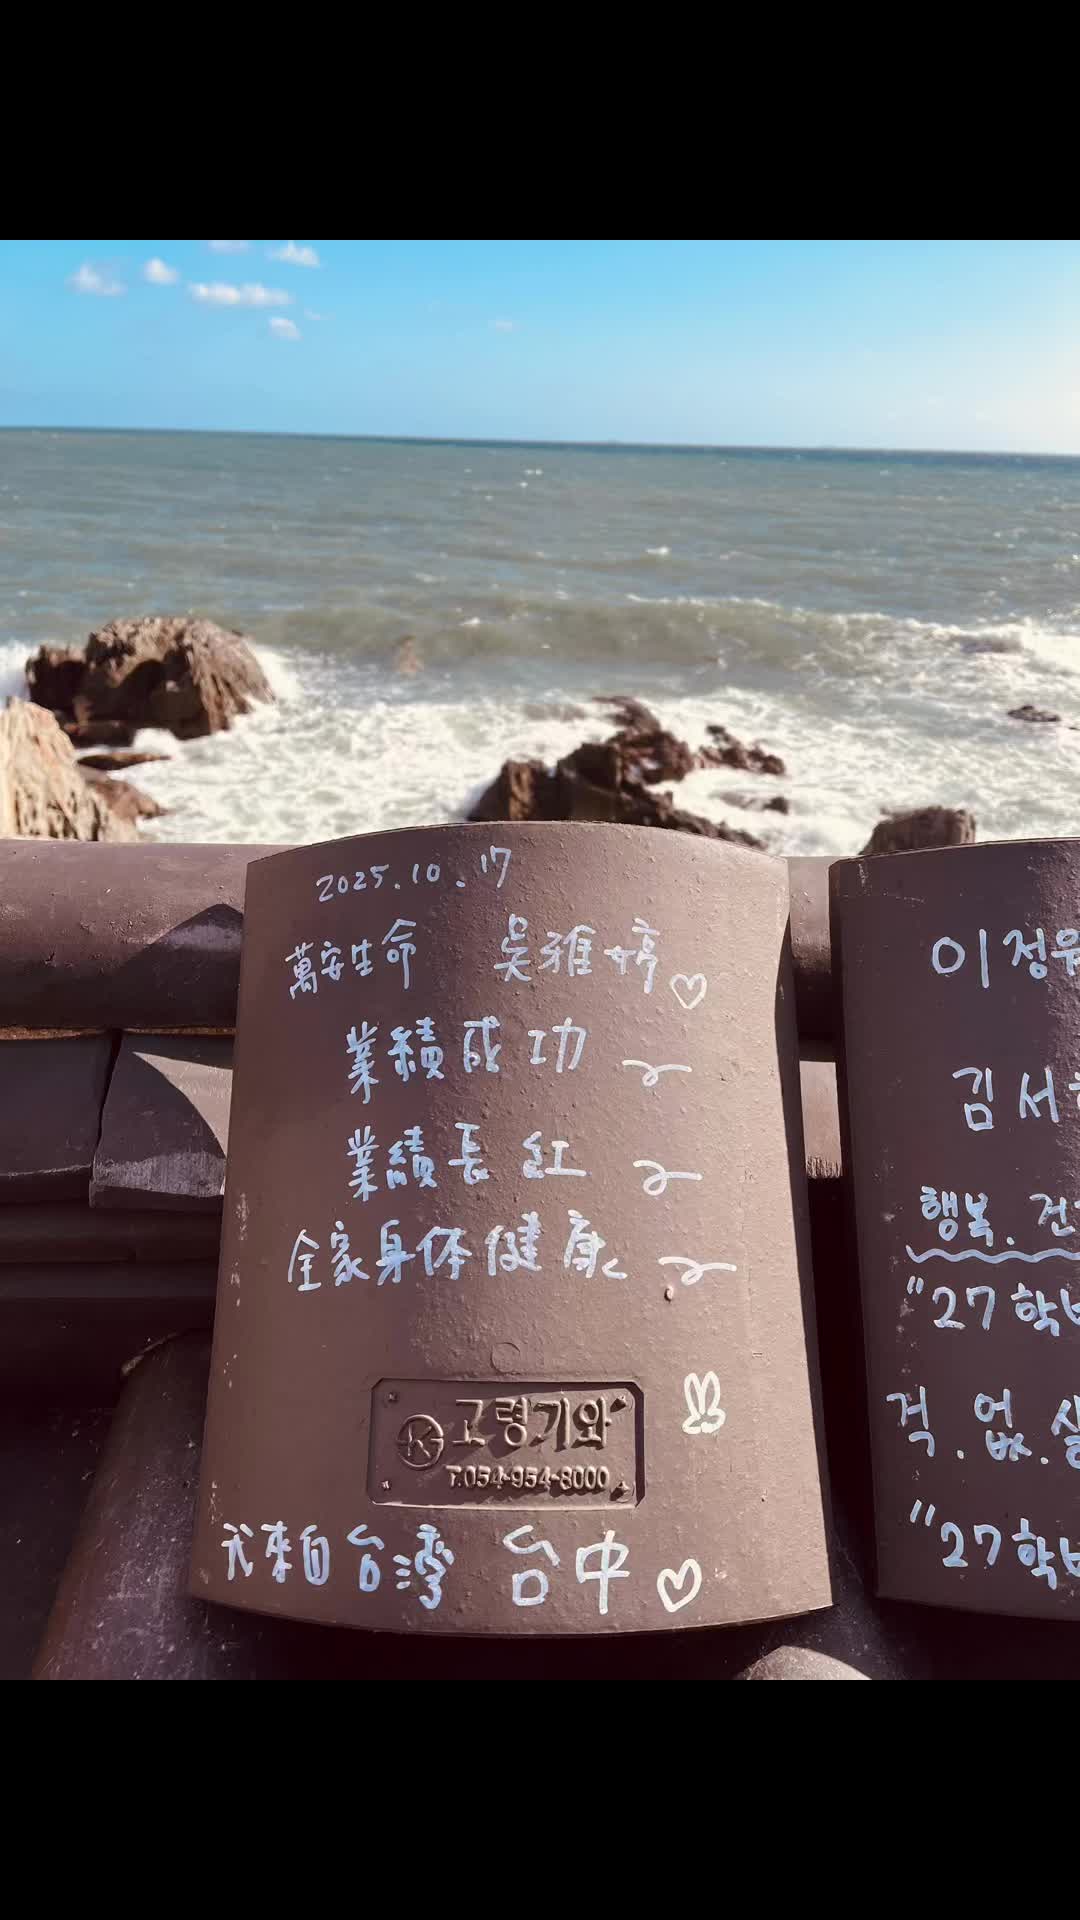 2025.10.17
萬安生命 吳雅婷♡
業績成功
業績長紅
全家身体健康
고령기와
T.054-954-8000
我來自台灣 台中♡
이정원
김서
행복. 건
"27학번
걱.없.실
"27학번